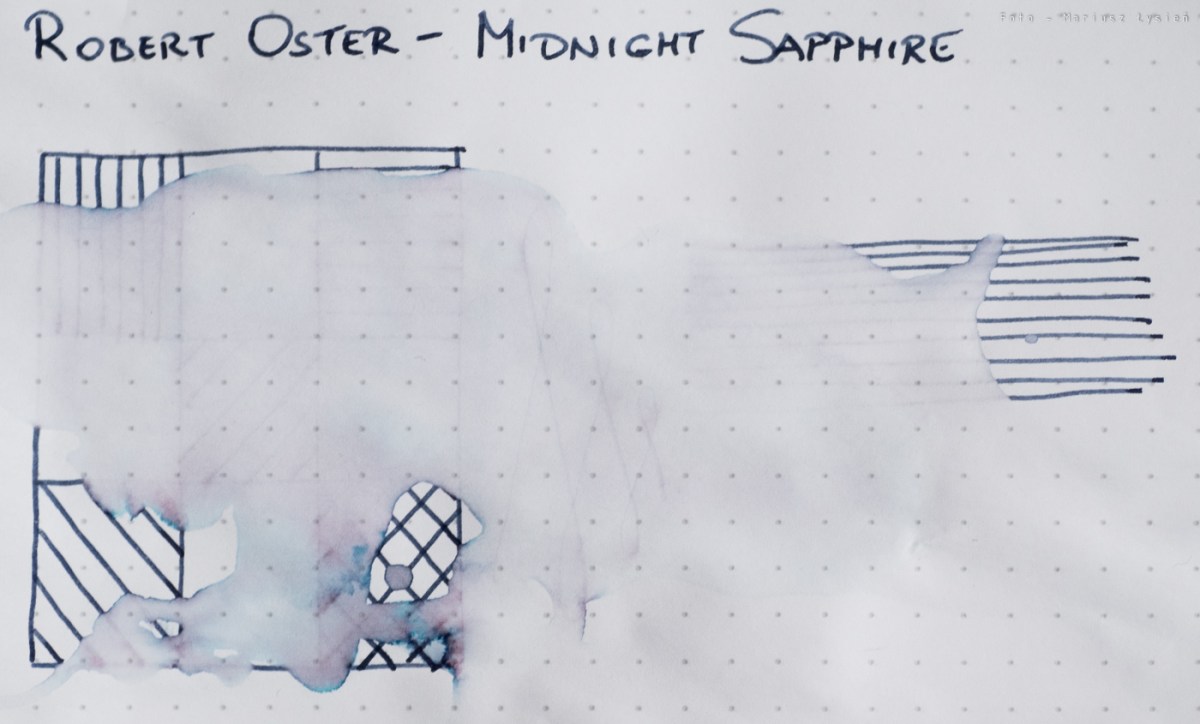 ROBERT OSTER - MIDNIGHT SAPPHIRE
Foto - Mariusz Łysień